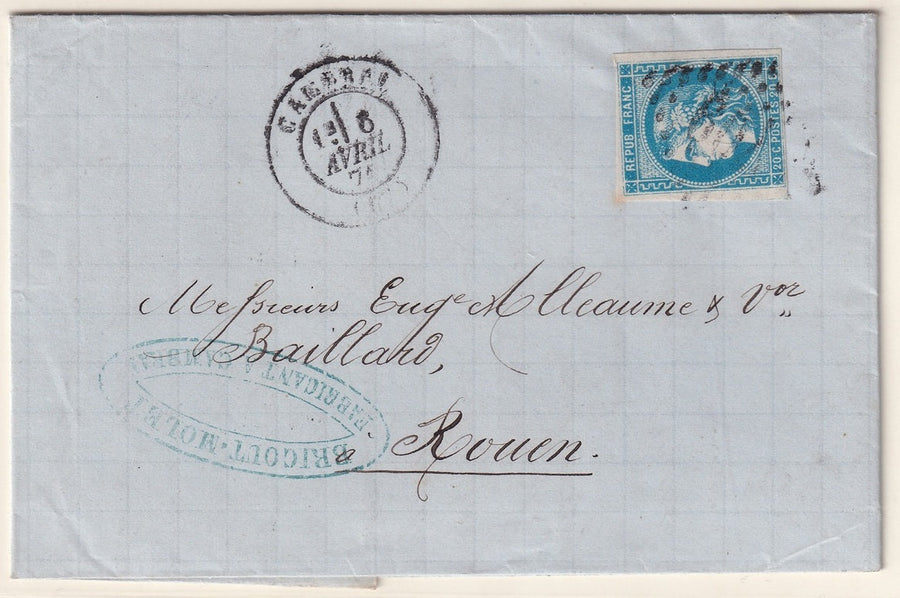 CAMBRAI
6
AVRIL
71
REPUB. FRANC.
20 C. POSTES 20 C.
Messieurs Eugᵉ Alleaume & Vᵒʳ
Baillard,
à Rouen.
BRICOUT-MOLET
FABRICANT A CAMBRAI